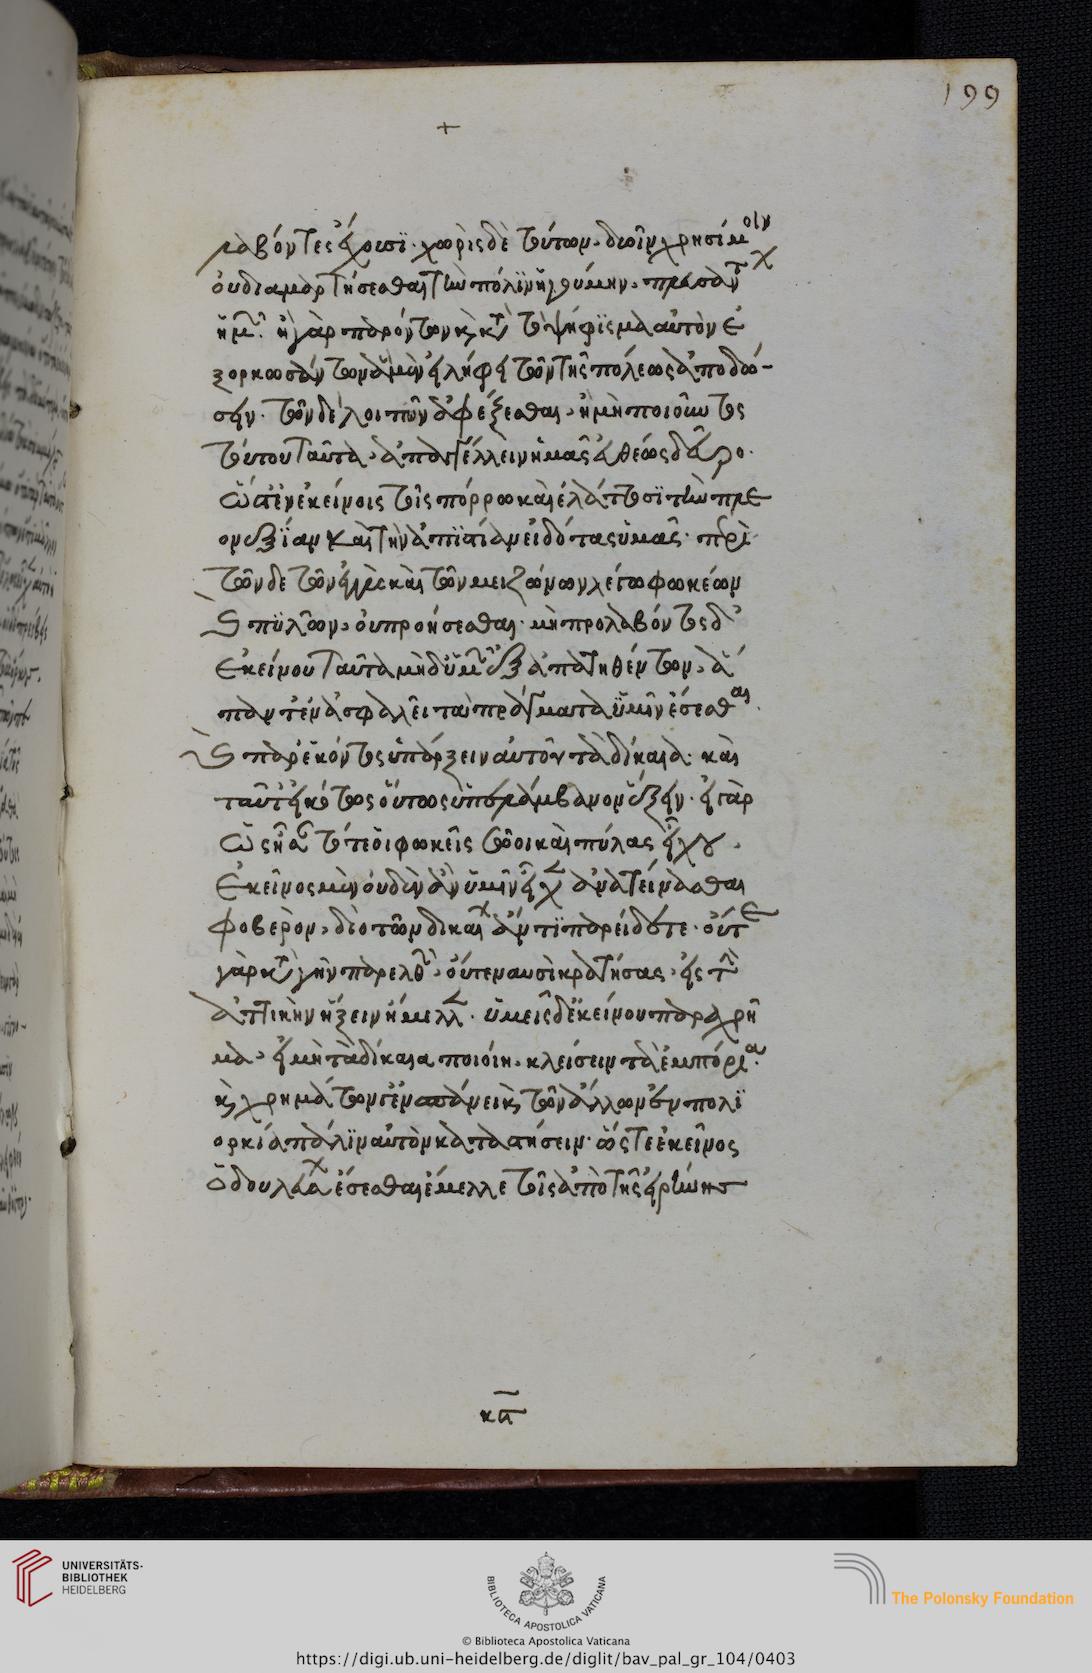 199
+
λαβόντες ἔχωσϊ. χωρὶς δὲ τούτων, δυοῖν χρησίμοιν
ὀυ διαμαρτήσεσθαι τὴν πόλϊν ἡγούμην, πλευσάντων
ἡμῶν· ἢ γὰρ παρόντων κ(αὶ) κατὰ τὸ ψήφϊσμα αὐτὸν ἐ
ξορκωσάντων ἃ μὲν εἰλήφει τῶν τῆς πόλεως ἀποδώ-
σειν. τῶν δὲ λοιπῶν ἀφέξεσθαι, ἢ μὴ ποιοῦντος
τούτου ταῦτα, ἀπαγγέλλειν ἡμᾶς εὐθέως δεῦρο.
ὥστ' ἐν ἐκείνοις τοῖς πόρρω καὶ ἐλάττοσϊ τὴν πλε
ονεξΐαν καὶ τὴν ἀπϊστίαν εἰδότας ὑμᾶς· περὶ
τῶνδε τῶν ἐγγὺς καὶ τῶν μειζόνων λέγω φωκέων
καὶ πϋλῶν, ὀυ προήσεσθαι. μὴ προλαβόντος δ'
ἐκείνου ταῦτα μὴδ' ὑμῶν ἐξαπατηθέντων, ἅ
παντ' ἐν ἀσφαλεῖ τὰ πράγματα ὑμῖν ἔσεσθαι.
καὶ παρ' ἑκόντος ὑπάρξειν αὐτοῦ τὰ δίκαια. καὶ
ταῦτ' εἰκότως οὕτως ὑπελάμβανον ἕξειν. εἰ γὰρ
ὡς ἦσαν τότε ὁι φωκεῖς σῶοι καὶ πύλας εἶχον.
ἐκεῖνος μὲν ὀυδὲν ἂν ὑμῖν εἶχεν ἀνατείνασθαι
φοβερὸν, διὸ τῶν δικαίων ἄν τϊ παρείδετε. οὔτε
γὰρ κατὰ γῆν παρελθὼν, ὄυτε ναυσὶ κρατήσας, εἰς τὴν
ἀττικὴν ἥξειν ἤμελλεν. ὑμεῖς δ' ἐκεῖνον παραχρῆ
μα, εἰ μὴ τὰ δίκαια ποιοίη, κλείσειν τὰ ἐμπόρια.
κ(αὶ) χρημάτων τ' ἐν σπάνει κ(αὶ) τῶν ἄλλων ἐν πολϊ
ορκία πάλϊν αὐτὸν καταστήσειν. ὥστε ἐκεῖνος
ὁ δουλεύων ἔσεσθαι ἔμελλε τοῖς ἀπὸ τῆς εἰρήνης
UNIVERSITÄTS-
BIBLIOTHEK
HEIDELBERG
BIBLIOTECA APOSTOLICA VATICANA
The Polonsky Foundation
© Biblioteca Apostolica Vaticana
https://digi.ub.uni-heidelberg.de/diglit/bav_pal_gr_104/0403